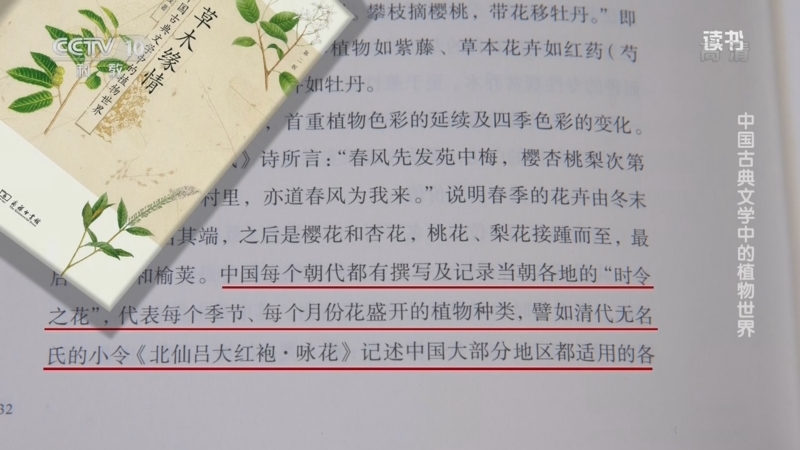 CCTV 10
科教
读书
高清
草木缘情
中国古典文学中的植物世界
商务印书馆
攀枝摘樱桃，带花移牡丹。”即
植物如紫藤、草本花卉如红药（芍
如牡丹。
，首重植物色彩的延续及四季色彩的变化。
》诗所言：“春风先发苑中梅，樱杏桃梨次第
村里，亦道春风为我来。”说明春季的花卉由冬末
其端，之后是樱花和杏花，桃花、梨花接踵而至，最
后 和榆荚。中国每个朝代都有撰写及记录当朝各地的“时令
之花”，代表每个季节、每个月份花盛开的植物种类，譬如清代无名
氏的小令《北仙吕大红袍·咏花》记述中国大部分地区都适用的各
32
中国古典文学中的植物世界